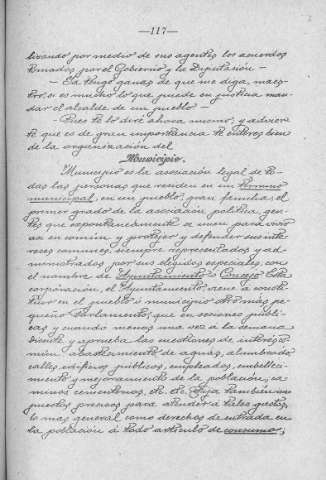 —117—
lizando por medio de sus agentes los acuerdos
tomados por el Gobierno y la Diputación —
— Ya tengo ganas de que me diga, maes-
tro, si es mucho lo que puede en justicia man-
dar el alcalde de un pueblo —
— Pues te lo diré ahora mismo, y advierte
te que es de gran importancia te enteres bien
de la organización del
Municipio.
Municipio es la asociación legal de to-
das las personas que residen en un término
municipal, en un pueblo; gran familia, el
primer grado de la asociación política; gen-
tes que espontáneamente se unen para vivir
en común, y proteger y defender sus inte-
reses comunes, siempre representados y ad-
ministrados por sus elegidos especiales, con
el nombre de Ayuntamiento o Concejo. Esta
corporación, el Ayuntamiento, viene a consti-
tuir en el pueblo o municipio otro más pe-
queño Parlamento, que en sesiones públi-
cas y cuando menos una vez a la semana
discute y aprueba las cuestiones de interés co-
mún: abastecimiento de aguas, alumbrado,
calles, edificios públicos, empleados, embelleci-
miento y mejoramiento de la población, ca-
minos, cementerios, &. &. Fija también im-
puestos precisos para atender a tales gastos,
lo más general, como derechos de entrada en
la población a todo artículo de consumo;